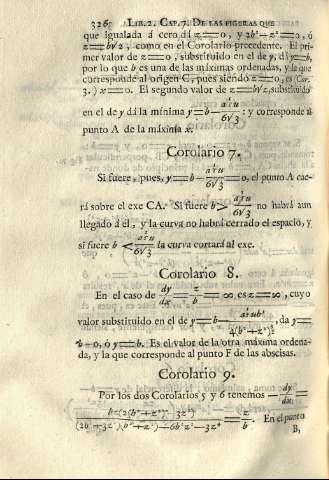 326 LIB. 2. CAP. 7. DE LAS FIGURAS QUE
que igualada á cero dá z=0, y 2b²+z²=0, ó
z=b√2, como en el Corolario precedente. El pri-
mer valor de z=0, substituido en el de y, dá y=b,
por lo que b es una de las máximas ordenadas, y la que
corresponde al origen C, pues siendo z=0, es (Cor.
3.) x=0. El segundo valor de z=b√2, substituido
en el de y dá la mínima y=b− a²ru/6√3 : y corresponde al
punto A de la máxîma x.
Corolario 7.
Si fuere, pues, y=b− a²ru/6√3 =0, el punto A cae-
rá sobre el exe CA. Si fuere b> a²ru/6√3 no habrá aun
llegado á el, y la curva no habrá cerrado el espacio, y
si fuere b < a²ru/6√3 la curva cortará al exe.
Corolario 8.
En el caso de dy/dx = z/b = ∞ es z=∞, cuyo
valor substituido en el de y=b− /4(b²+z²)², da y=
b−0, ó y=b. Es el valor de la otra máxima ordena-
da, y la que corresponde al punto F de las abscisas.
Corolario 9.
Por los dos Corolarios 5 y 6 tenemos − dy/dx =
bz(2(b²+z²)−3z²)/(2b²−3z²)(b²+z²)−6b²z²−3z⁴ = z/b. En el punto
B,